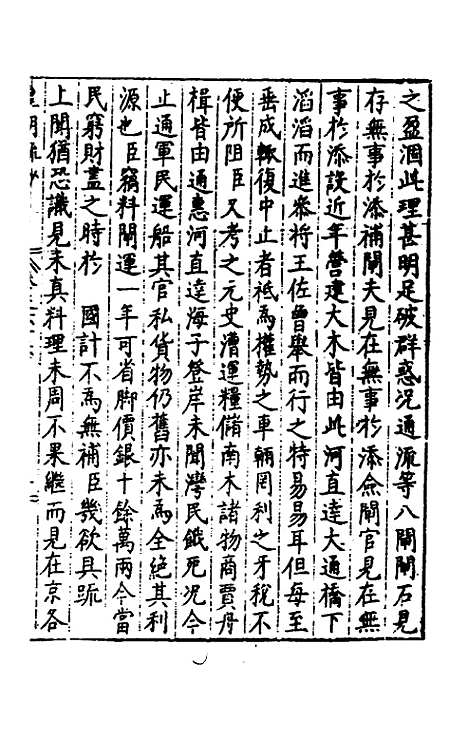 之盈涸此理甚明足破群惑况通流等八閘閘石見
存無事於添補閘夫見在無事於添僉閘官見在無
事於添設近年營建大木皆由此河直達大通橋下
滔滔而進叅將王佐曾舉而行之特易易耳但每至
垂成輒復中止者祇為權勢之車輛罔利之牙稅不
便所阻臣又考之元史漕運糧儲南木諸物商賈舟
楫皆由通惠河直達海子登岸未聞灣民餓死况今
止通軍民運船其官私貨物仍舊亦未為全絕其利
源也臣竊料閘運一年可省脚價銀十餘萬兩今當
民窮財盡之時於 國計不為無補臣幾欲具䟽
上聞猶恐識見未真料理未周不果繼而見在京各
皇明疏鈔